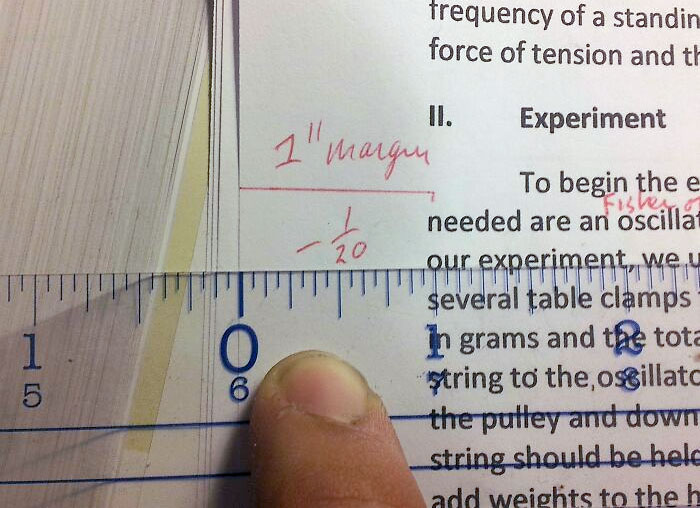 frequency of a standin
force of tension and th
II. Experiment
1" margin
To begin the e
Fisher
needed are an oscillat
- 1/20
our experiment, we u
several table clamps
1 0 1 2
in grams and the tota
5 6 7 8
string to the oscillato
the pulley and down
string should be held
add weights to the h